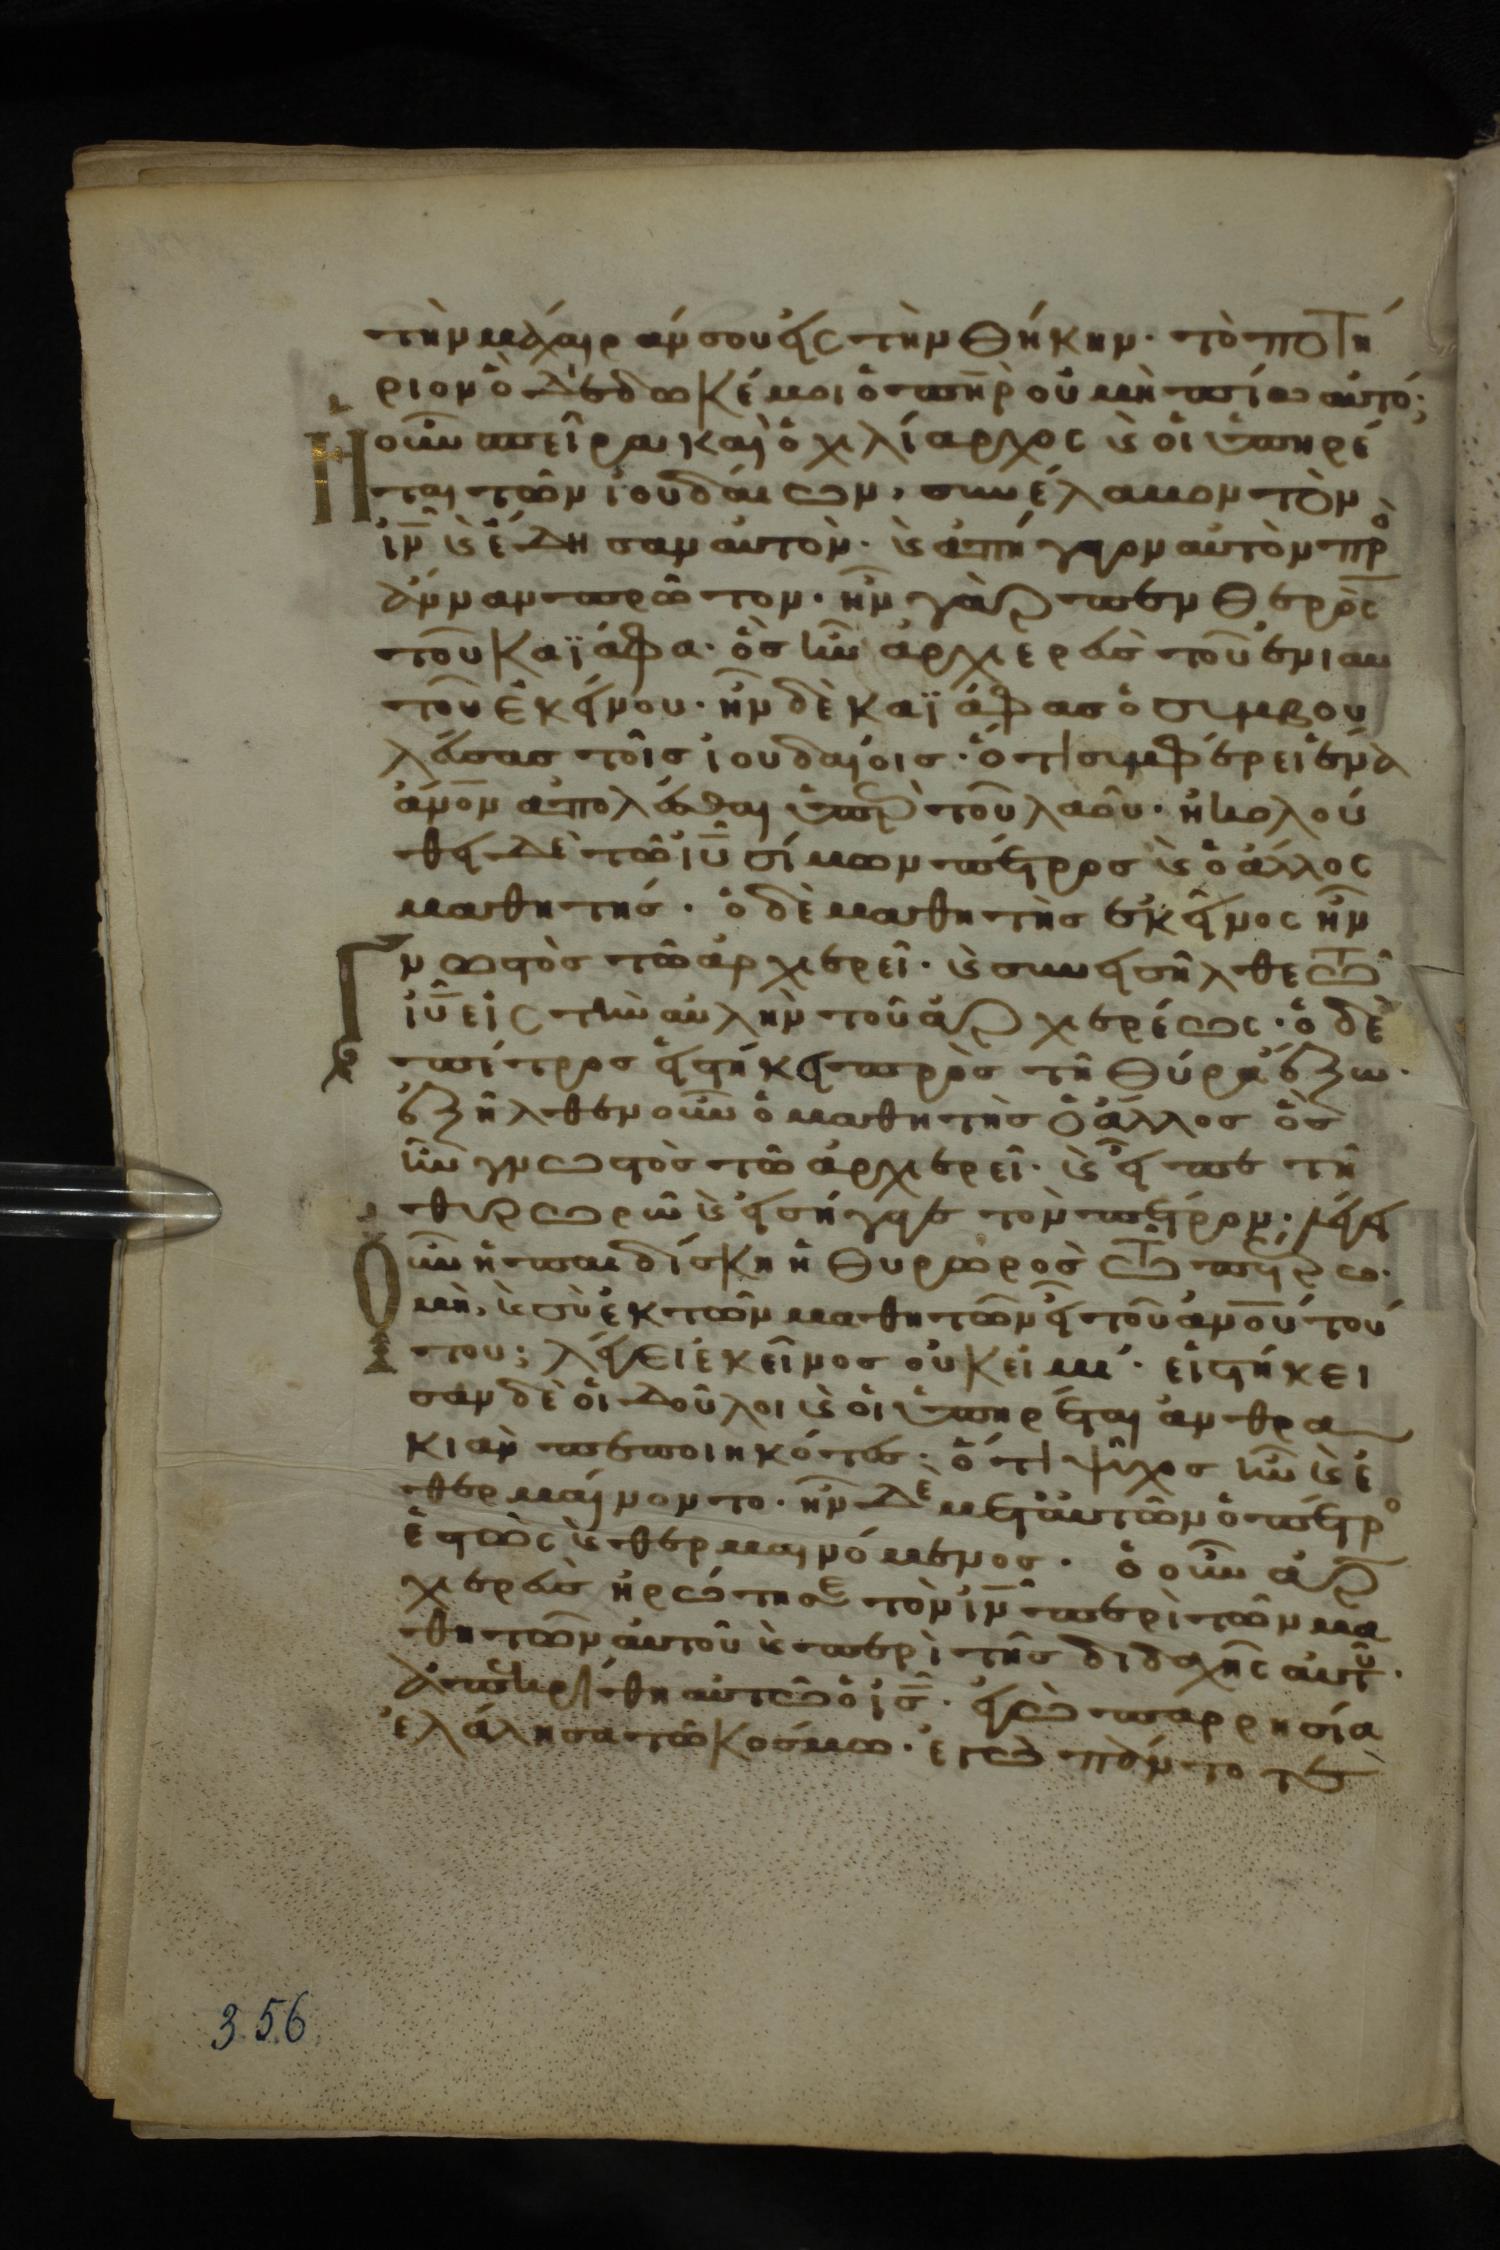 τὴν μάχαιράν σου εἰς τὴν θήκην· τὸ ποτή
ριον ὃ δέδωκέ μοι ὁ πη̅ρ οὐ μὴ πίω αὐτό;
Ἡ οὖν σπεῖρα καὶ ὁ χιλίαρχος κ̀ οἱ ὑπηρέ
ται τῶν ἰουδαίων, συνέλαβον τὸν
ἰν̅ κ̀ ἔδησαν αὐτὸν· κ̀ ἀπήγαγον αὐτὸν πρὸ
ἄνναν πρῶτον· ἦν γὰρ πενθερὸς
τοῦ καϊάφα· ὃς ἦν ἀρχιερεὺς τοῦ ἐνιαυ
τοῦ ἐκείνου· ἦν δὲ καϊάφας ὁ συμβου
λεύσας τοῖς ἰουδαίοις· ὅτι συμφέρει ἕνα
ἀν̅ον ἀπολέσθαι ὑπὲρ τοῦ λαοῦ· ἠκολού
θει δὲ τῶ ἰυ̅ σίμων πέτρος κ̀ ὁ ἄλλος
μαθητής· ὁ δὲ μαθητὴς ἐκεῖνος ἦν
Γνωστὸς τῶ ἀρχιερεῖ· κ̀ συνεισῆλθε τῶ
ἰυ̅ εἰς τὴν αὐλὴν τοῦ ἀρχιερέως· ὁ δὲ
πέτρος εἱστήκει πρὸς τῆ θύρα ἔξω·
ἐξῆλθεν οὖν ὁ μαθητὴς ὁ ἄλλος ὃς
ἦν γνωστὸς τῶ ἀρχιερεῖ· κ̀ εἶπε τῆ
θυρωρῶ κ̀ εἰσήγαγε τὸν πέτρον· λέγει
Οὖν ἡ παιδίσκη ἡ θυρωρὸς τῶ πέτρω·
μὴ, κ̀ σὺ ἐκ τῶν μαθητῶν εἶ τοῦ ἀν̅ου τού
του; λέγει ἐκεῖνος οὐκ εἰμί· εἱστήκει
σαν δὲ οἱ δοῦλοι κ̀ οἱ ὑπηρέται ἀνθρα
κιὰν πεποιηκότες· ὅτι ψῦχος ἦν κ̀ ἐ
θερμαίνοντο· ἦν δὲ μετ' αὐτῶν ὁ πέτρο
ἑστὼς κ̀ θερμαινόμενος· ὁ οὖν ἀρ
χιερεὺς ἠρώτησε τὸν ἰν̅ περὶ τῶν μα
θητῶν αὐτοῦ κ̀ περὶ τῆς διδαχῆς αὐτοῦ·
ἀπεκρίθη αὐτῶ ὁ ἰς̅· ἐγὼ παρρησία
ἐλάλησα τῶ κόσμω· ἐγὼ πάντοτε
356